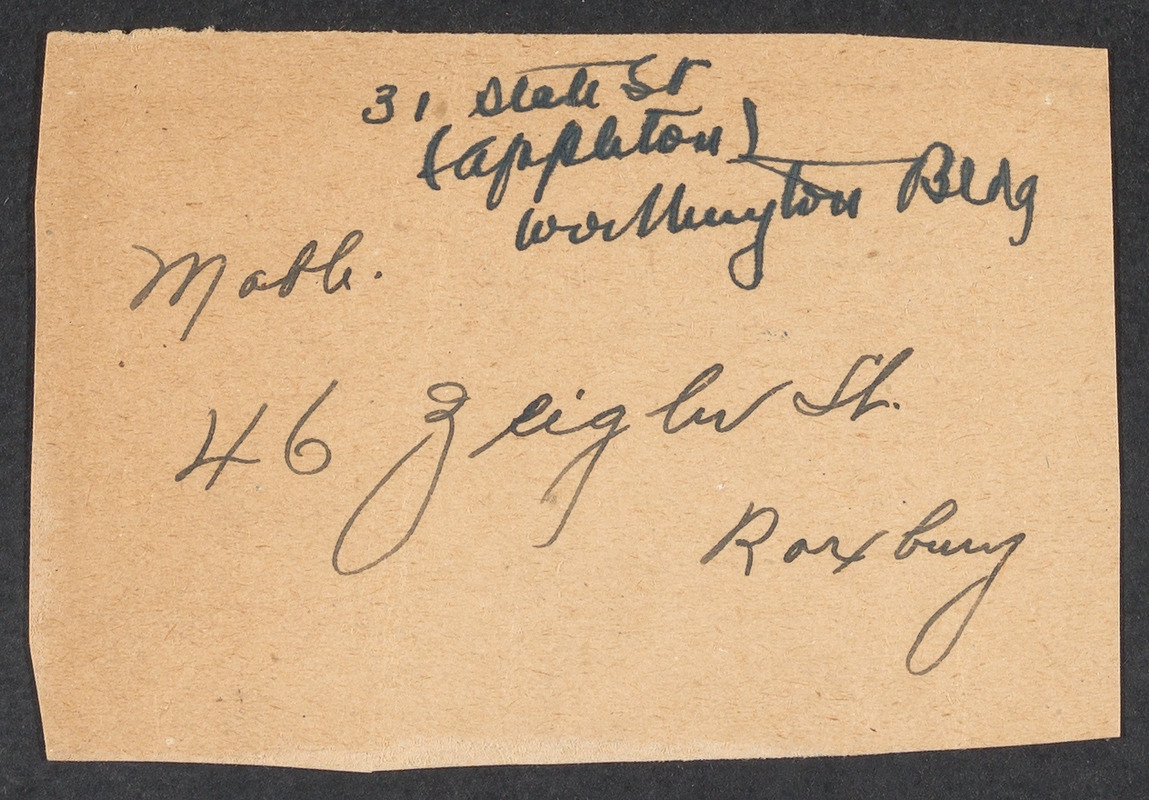 31 State St
(Appleton)
Worthington Bldg
46 Zeigler St.
Roxbury